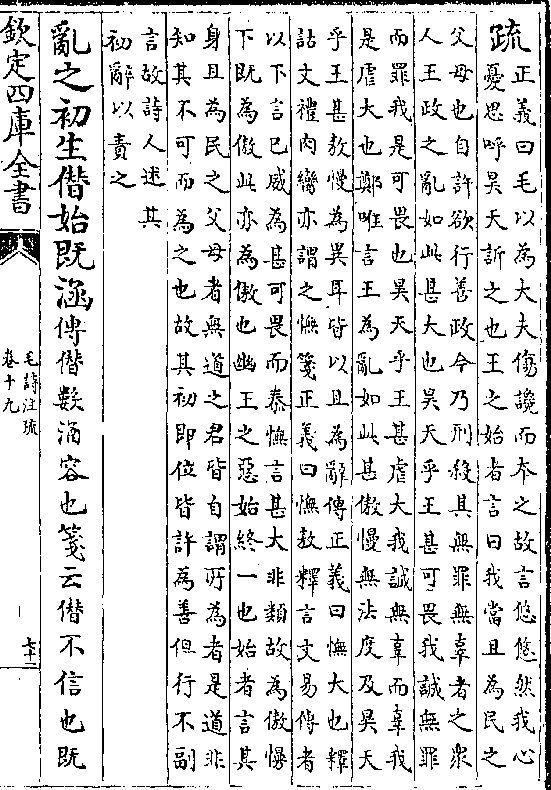 疏正義曰毛以為大夫傷讒而本之故言悠悠然我心
憂思呼昊天訴之也王之始者言曰我當且為民之
父母也自許欲行善政今乃刑殺其無罪無辜者之衆
人王政之亂如此甚大也昊天乎王甚可畏我誠無罪
而罪我是可畏也昊天乎王甚虐大我誠無辜而辜我
是虐大也鄭唯言王為亂如此甚傲慢無法度及昊天
乎王甚敖慢為異耳皆以且為辭傳正義曰憮大也釋
詁文禮肉臠亦謂之憮箋正義曰憮敖釋言文易傳者
以下言已威為甚可畏而泰憮言甚大非類故為傲慢
下既為傲此亦為傲也幽王之惡始終一也始者言其
身且為民之父母者無道之君皆自謂所為者是道非
知其不可而為之也故其初即位皆許為善但行不副
言故詩人述其
初辭以責之
亂之初生僭始既涵傳僭數涵容也箋云僭不信也既
欽定四庫全書
毛詩注疏
卷十九